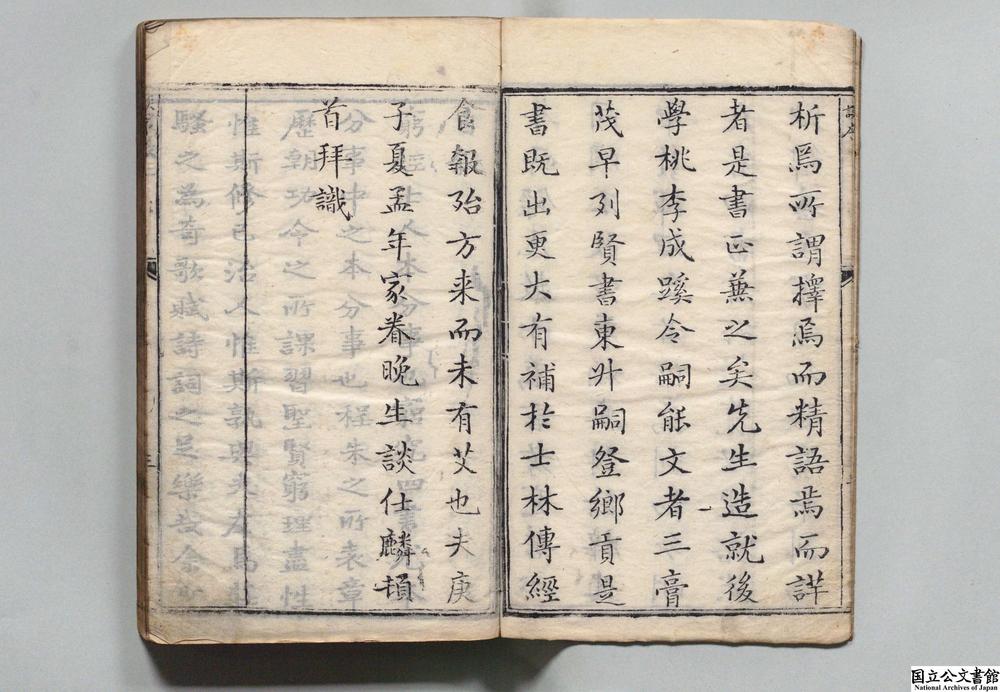 析焉所謂擇焉而精語焉而詳
者是書正兼之矣先生造就後
學桃李成蹊令嗣能文者三膏
茂早列賢書東升嗣登鄉貢是
書既出更大有補於士林傳經
食報殆方来而未有艾也夫庚
子夏孟年家眷晚生談仕麟頓
首拜識
国立公文書館
National Archives of Japan